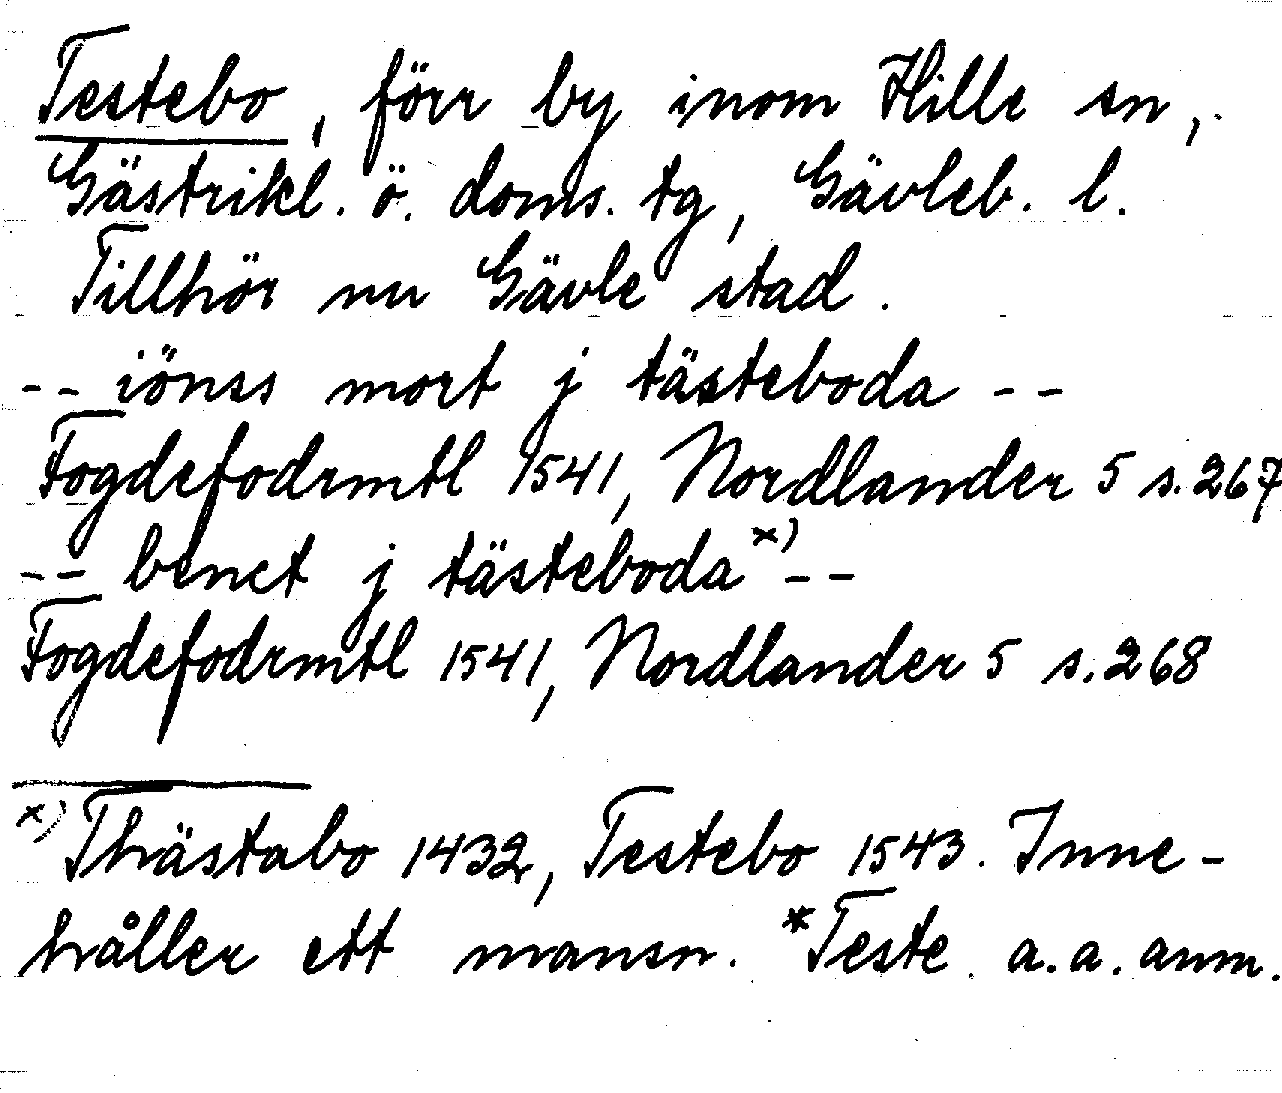 Testebo, förr by inom Hille sn,
Gästrikl. ö. doms. tg, Gävleb. l.
Tillhör nu Gävle stad.
-- iönss mort j tästeboda --
Fogdefodrmtl 1541, Nordlander 5 s. 267
-- benct j tästeboda x) --
Fogdefodrmtl 1541, Nordlander 5 s. 268
x) Thästabo 1432, Testebo 1543. Inne-
håller ett mansn. *Teste a.a. anm.